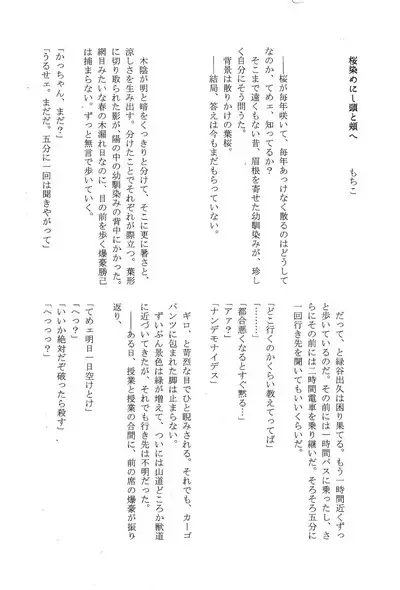 桜染めにし頭と頬へ
もちこ
――桜が毎年咲いて、毎年あっけなく散るのはどうして
なのか、てめェ、知ってるか?
そこまで遠くもない昔、眉根を寄せた幼馴染みが、珍し
く自分にそう問うた。
背景は散りかけの葉桜。
――結局、答えは今もまだもらっていない。
木陰が明と暗をくっきりと分けて、そこに更に暑さと、
涼しさを生み出す。分けたことでそれぞれが際立つ。葉形
に切り取られた影が、陽の中の幼馴染みの背中にかかった。
網目みたいな春の木漏れ日なのに、目の前を歩く爆豪勝己
は捕まらない。ずっと無言で歩いていく。
「かっちゃん、まだ?」
「うるせェ。まだだ。五分に一回は聞きやがって」
だって、と緑谷出久は困り果てる。もう一時間近くずっ
と歩いているのだ。その前には一時間バスに乗ったし、さ
らにその前には二時間電車を乗り継いだ。そろそろ五分に
一回行き先を聞いてもいいくらいだ。
「どこ行くのかくらい教えてってば」
「………」
「都合悪くなるとすぐ黙る…」
「アァ?」
「ナンデモナイデス」
ギロ、と苛烈な目でひと睨みされる。それでも、カーゴ
パンツに包まれた脚は止まらない。
ずいぶん景色は緑が増えて、ついには山道どころか獣道
に近づいてきたが、それでも行き先は不明だった。
――ある日、授業と授業の合間に、前の席の爆豪が振り
返り、
「てめェ明日一日空けとけ」
「へっ?」
「いいか絶対だぞ破ったら殺す」
「へっっっ?」